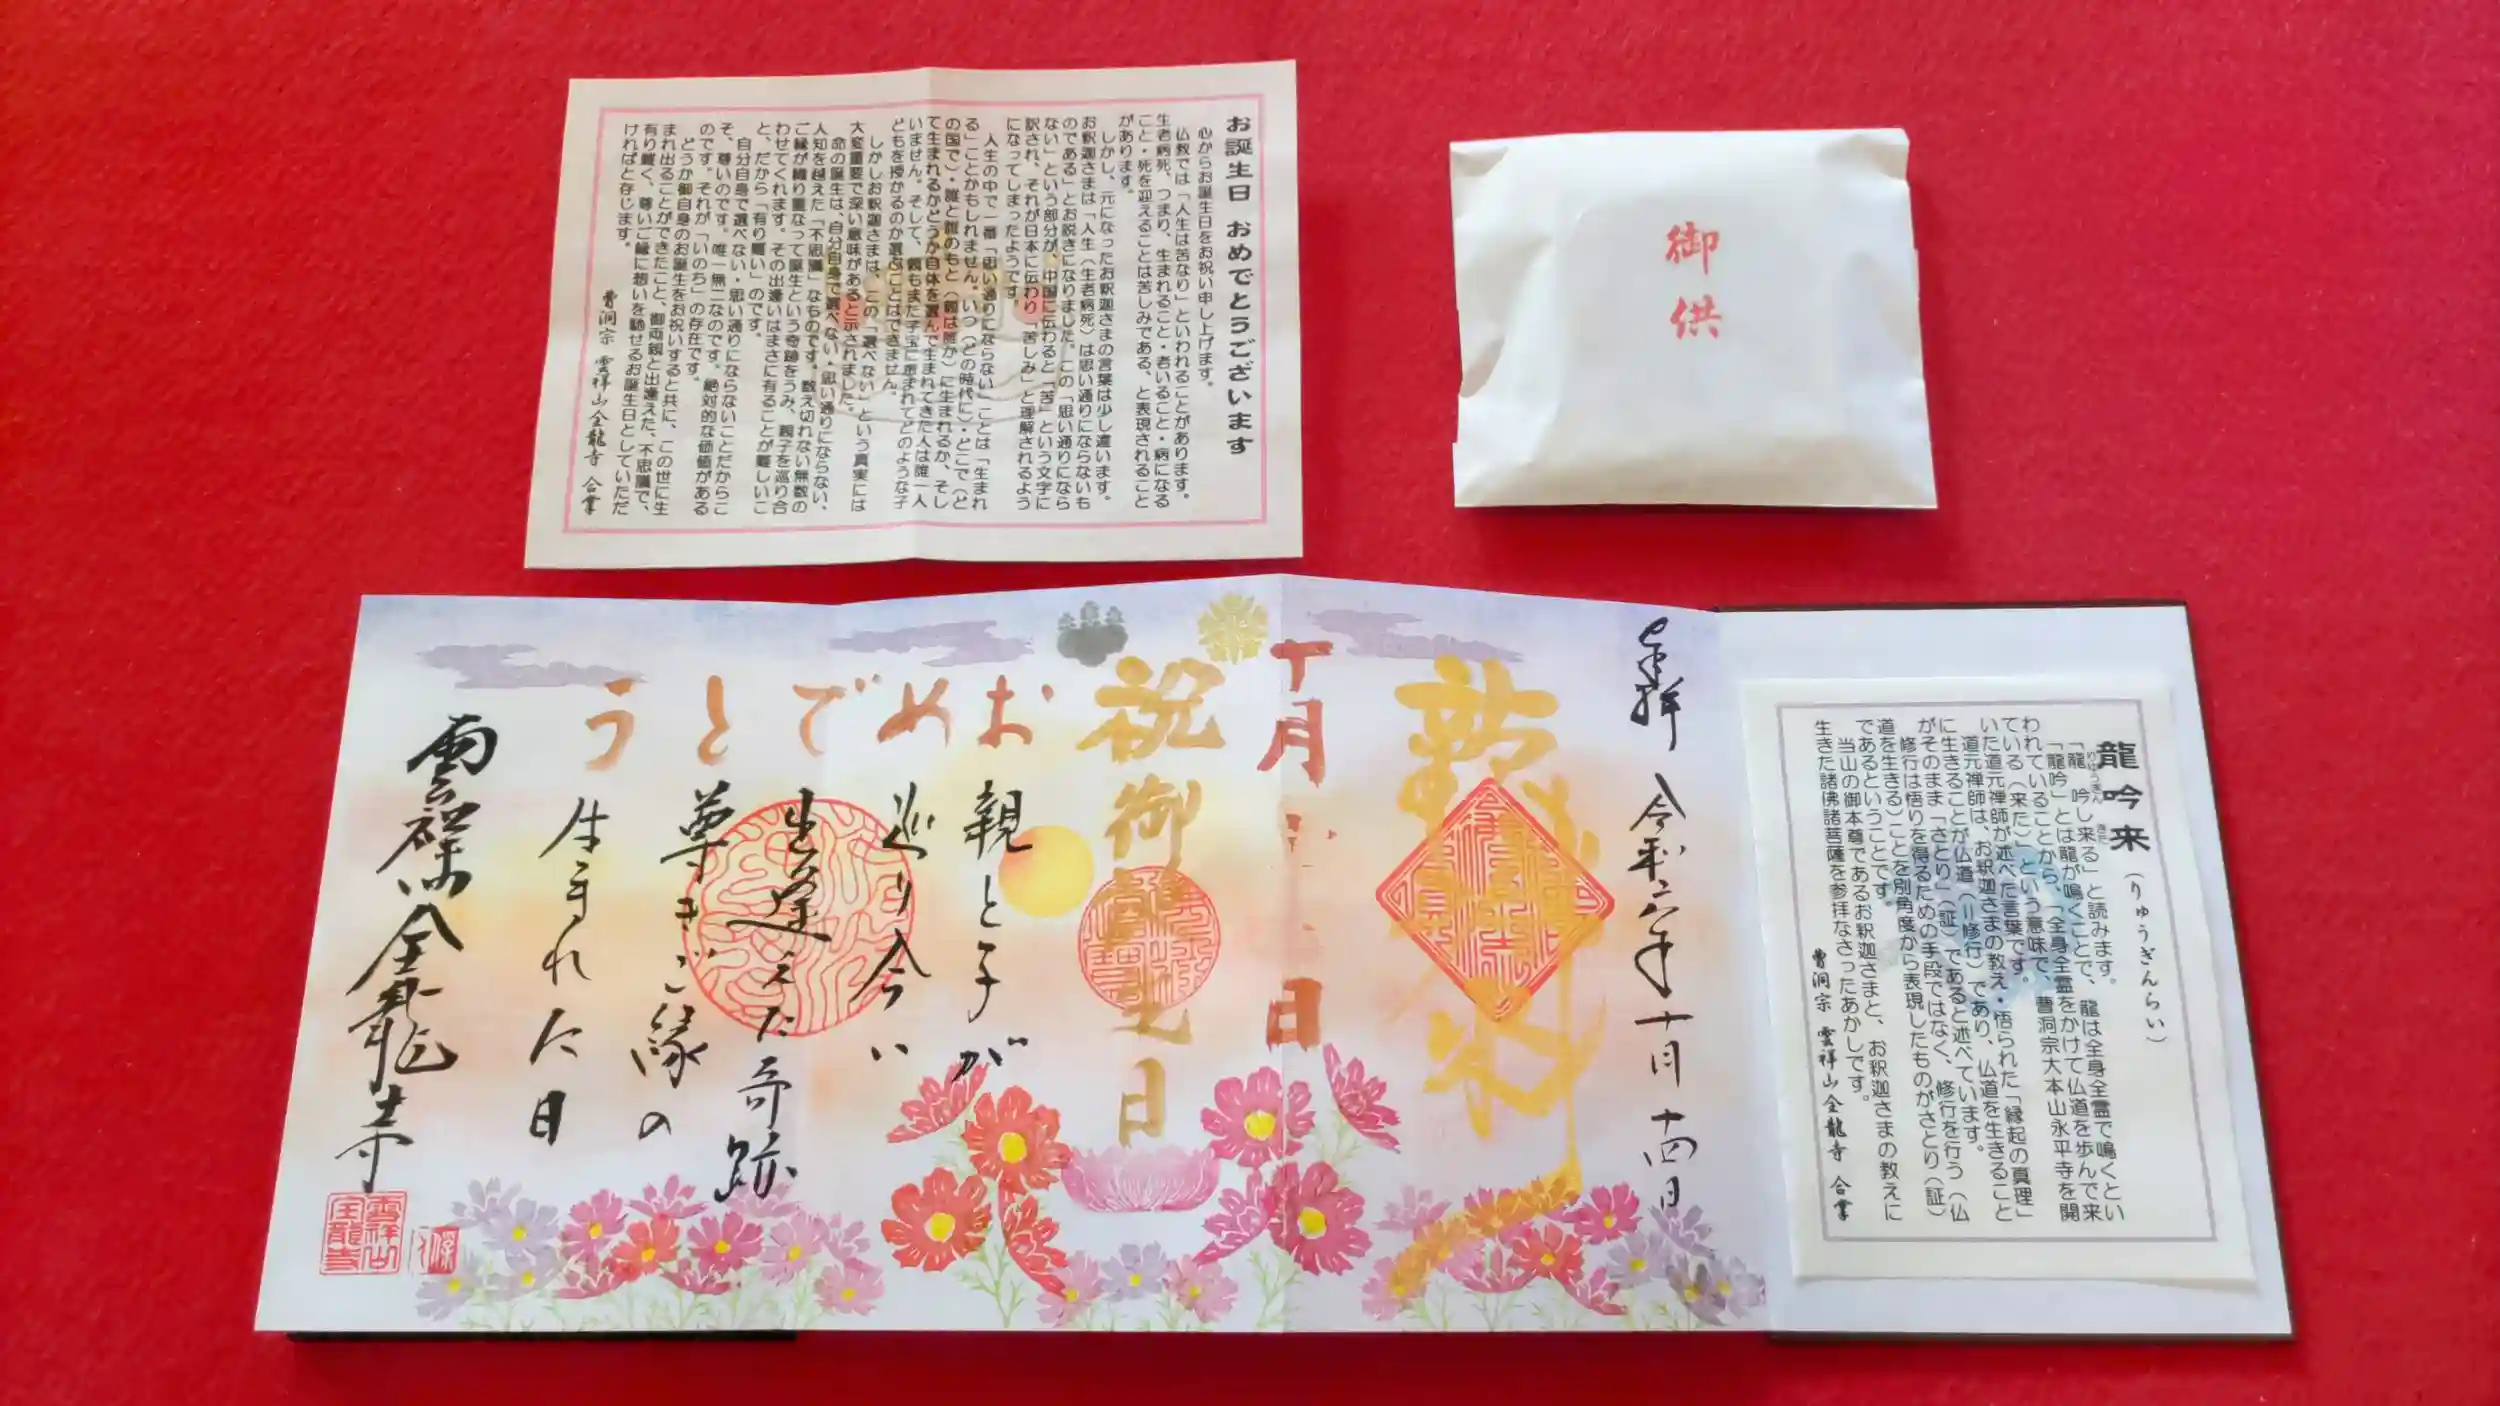 お誕生日 おめでとうございます
心からお誕生日をお祝い申し上げます。
仏教では「人生は苦なり」といわれることがあります。
生老病死、つまり、生まれること・老いること・病になる
こと・死を迎えることは苦しみである、と表現されること
があります。
しかし、元になったお釈迦さまの言葉は少し違います。
お釈迦さまは「人生(生老病死)は思い通りにならないも
のである」とお説きになりました。この「思い通りになら
ない」という部分が、中国に伝わると「苦」という文字に
訳され、それが日本に伝わり「苦しみ」と理解されるよう
になってしまったようです。
人生の中で一番「思い通りにならない」ことは「生まれ
る」ことかもしれません。いつ(どの時代に)・どこで(ど
の国で)・誰と誰のもと(親は誰か)に生まれるか、そし
て生まれるかどうか自体を選んで生まれてきた人は誰一人
いません。そして、親もまた子宝に恵まれてどのような子
どもを授かるのか選ぶことはできません。
しかしお釈迦さまは、この「選べない」という真実には
大変重要で深い意味があると示されました。
命の誕生は、自分自身で選べない・思い通りにならない、
人知を越えた「不思議」なものです。数え切れない無数の
ご縁が織り重なって誕生という奇跡をうみ、親子を巡り合
わせてくれます。その出逢いはまさに有ることが難しいこ
と、だから「有り難い」のです。
自分自身で選べない・思い通りにならないことだからこ
そ、尊いのです。唯一無二なのです。絶対的な価値がある
のです。それが「いのち」の存在です。
どうか御自身のお誕生をお祝いすると共に、この世に生
まれ出ることができたこと、御両親と出逢えた、不思議で、
有り難く、尊いご縁に想いを馳せるお誕生日としていただ
ければと存じます。
曹洞宗 雲祥山全龍寺 合掌
御供
龍吟来(りゅうぎんらい)
「龍 吟し来る」と読みます。
りゅうぎん
きた
「龍吟」とは龍が鳴くことで、龍は全身全霊で鳴くとい
われていることから、「全身全霊をかけて仏道を歩んで来
ている(来た)」という意味で、曹洞宗大本山永平寺を開
いた道元禅師が述べた言葉です。
道元禅師は、お釈迦さまの教え・悟られた「縁起の真理」
に生きることが仏道(=修行)であり、仏道を生きること
がそのまま「さとり」(証)であると述べています。
修行は悟りを得るための手段ではなく、修行を行う(仏
道を生きる)ことを別角度から表現したものがさとり(証)
であるということです。
当山の御本尊であるお釈迦さまと、お釈迦さまの教えに
生きた諸佛諸菩薩を参拝なさったあかしです。
曹洞宗 雲祥山全龍寺 合掌
奉拝 令和六年十月十四日
龍吟来
祝御誕生日
おめでとう
親と子が
巡り合い
出逢えた奇跡
尊きご縁の
生まれた日
雲祥山全龍寺
雲祥山全龍寺